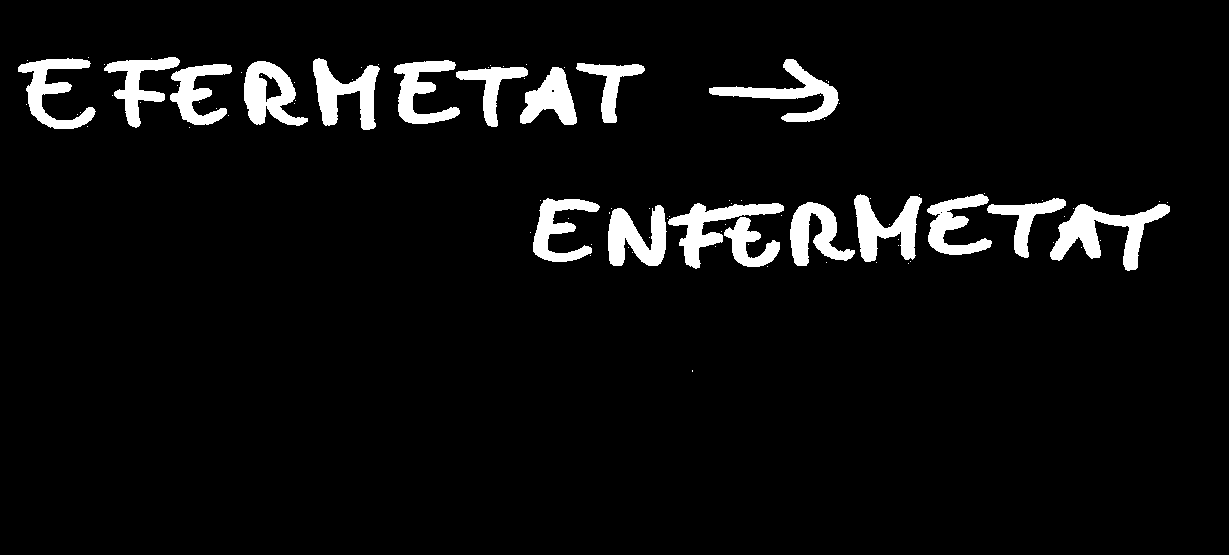 EFERMETAT →
ENFERMETAT